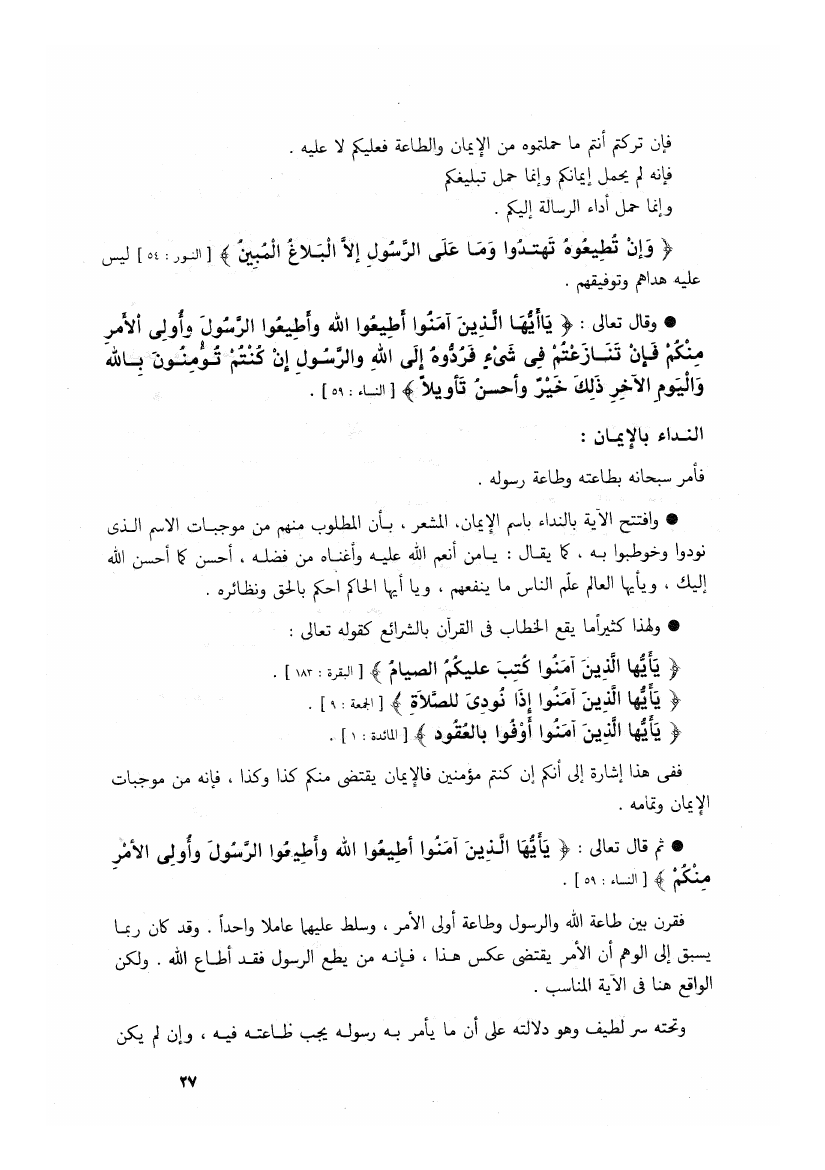 فإن تركتم أنتم ما حملتموه من الإيمان والطاعة فعليكم لا عليه .
فإنه لم يحمل إيمانكم وإنما حمل تبليغكم
وإنما حمل أداء الرسالة إليكم .
﴿ وَإِنْ تُطِيعُوهُ تَهتـدُوا وَمَـا عَلَى الرَّسُولِ إلاَّ الْبَـلاَغُ الْمُبِينُ ﴾ [ النـور : ٥٤ ] ليس
عليه هداهم وتوفيقهم .
● وقال تعالى : ﴿ يَاأيُّهَـا الَّـذِينَ آمَنُوا أَطِيعُوا الله وأَطِيعُوا الرَّسُولَ وأُولِى ألأَمرِ
مِنْكُمْ فَـإنْ تَنَـازَعْتُمْ فِى شَىْءٍ فَرُدُّوهُ إلَى اللهِ والرَّسُـولِ إنْ كُنْتُمْ تُـؤْمِنُـونَ بِـالله
وَالْيَومِ الآخرِ ذَلِكَ خَيْرٌ وأحسنُ تَأويلاً ﴾ [ النساء : ٥٩ ] .
النـداء بالإيمـان :
فأمر سبحانه بطاعته وطاعة رسوله .
● وافتتح الآية بالنداء باسم الإيمان، المشعر ، بـأن المطلوب منهم من موجبـات الاسم الـذى
نودوا وخوطبوا بـه ، كما يقـال : يـامن أنعم الله عليـه وأغنـاه من فضلـه ، أحسن كما أحسن الله
إليك ، ويأيها العالم علّم الناس ما ينفعهم ، ويا أيها الحاكم احكم بالحق ونظائره .
● ولهذا كثيرأما يقع الخطاب فى القرآن بالشرائع كقوله تعالى :
﴿ يَأَيُّها الَّذِينَ آمَنُوا كُتِبَ عليكُمُ الصيامُ ﴾ [ البقرة : ١٨٣ ] .
﴿ يَأَيُّها الَّذِينَ آمَنُوا إذَا نُودِىَ للصَّلاَةِ ﴾ [ الجمعة : ٩ ] .
﴿ يَأَيُّها الَّذِينَ آمَنُوا أَوْفُوا بالعُقُود ﴾ [ المائدة : ١ ] .
ففى هذا إشارة إلى أنكم إن كنتم مؤمنين فالإيمان يقتضى منكم كذا وكذا ، فإنه من موجبات
الإيمان وتمامه .
● ثم قال تعالى : ﴿ يَأَيُّهَا الَّـذِينَ آمَنُوا أطيعُوا الله وأَطِيعُوا الرَّسُولَ وأُولِى الأمْرِ
مِنْكُمْ ﴾ [ النساء : ٥٩ ] .
فقرن بين طاعة الله والرسول وطاعة أولى الأمر ، وسلط عليهما عاملا واحداً . وقد كان ربمـا
يسبق إلى الوهم أن الأمر يقتضى عكس هـذا ، فـإنـه من يطع الرسول فقـد أطـاع الله . ولكن
الواقع هنا فى الآية المناسب .
وتحته سر لطيف وهو دلالته على أن ما يأمر بـه رسولـه يجب طـاعتـه فيـه ، وإن لم يكن
٢٧